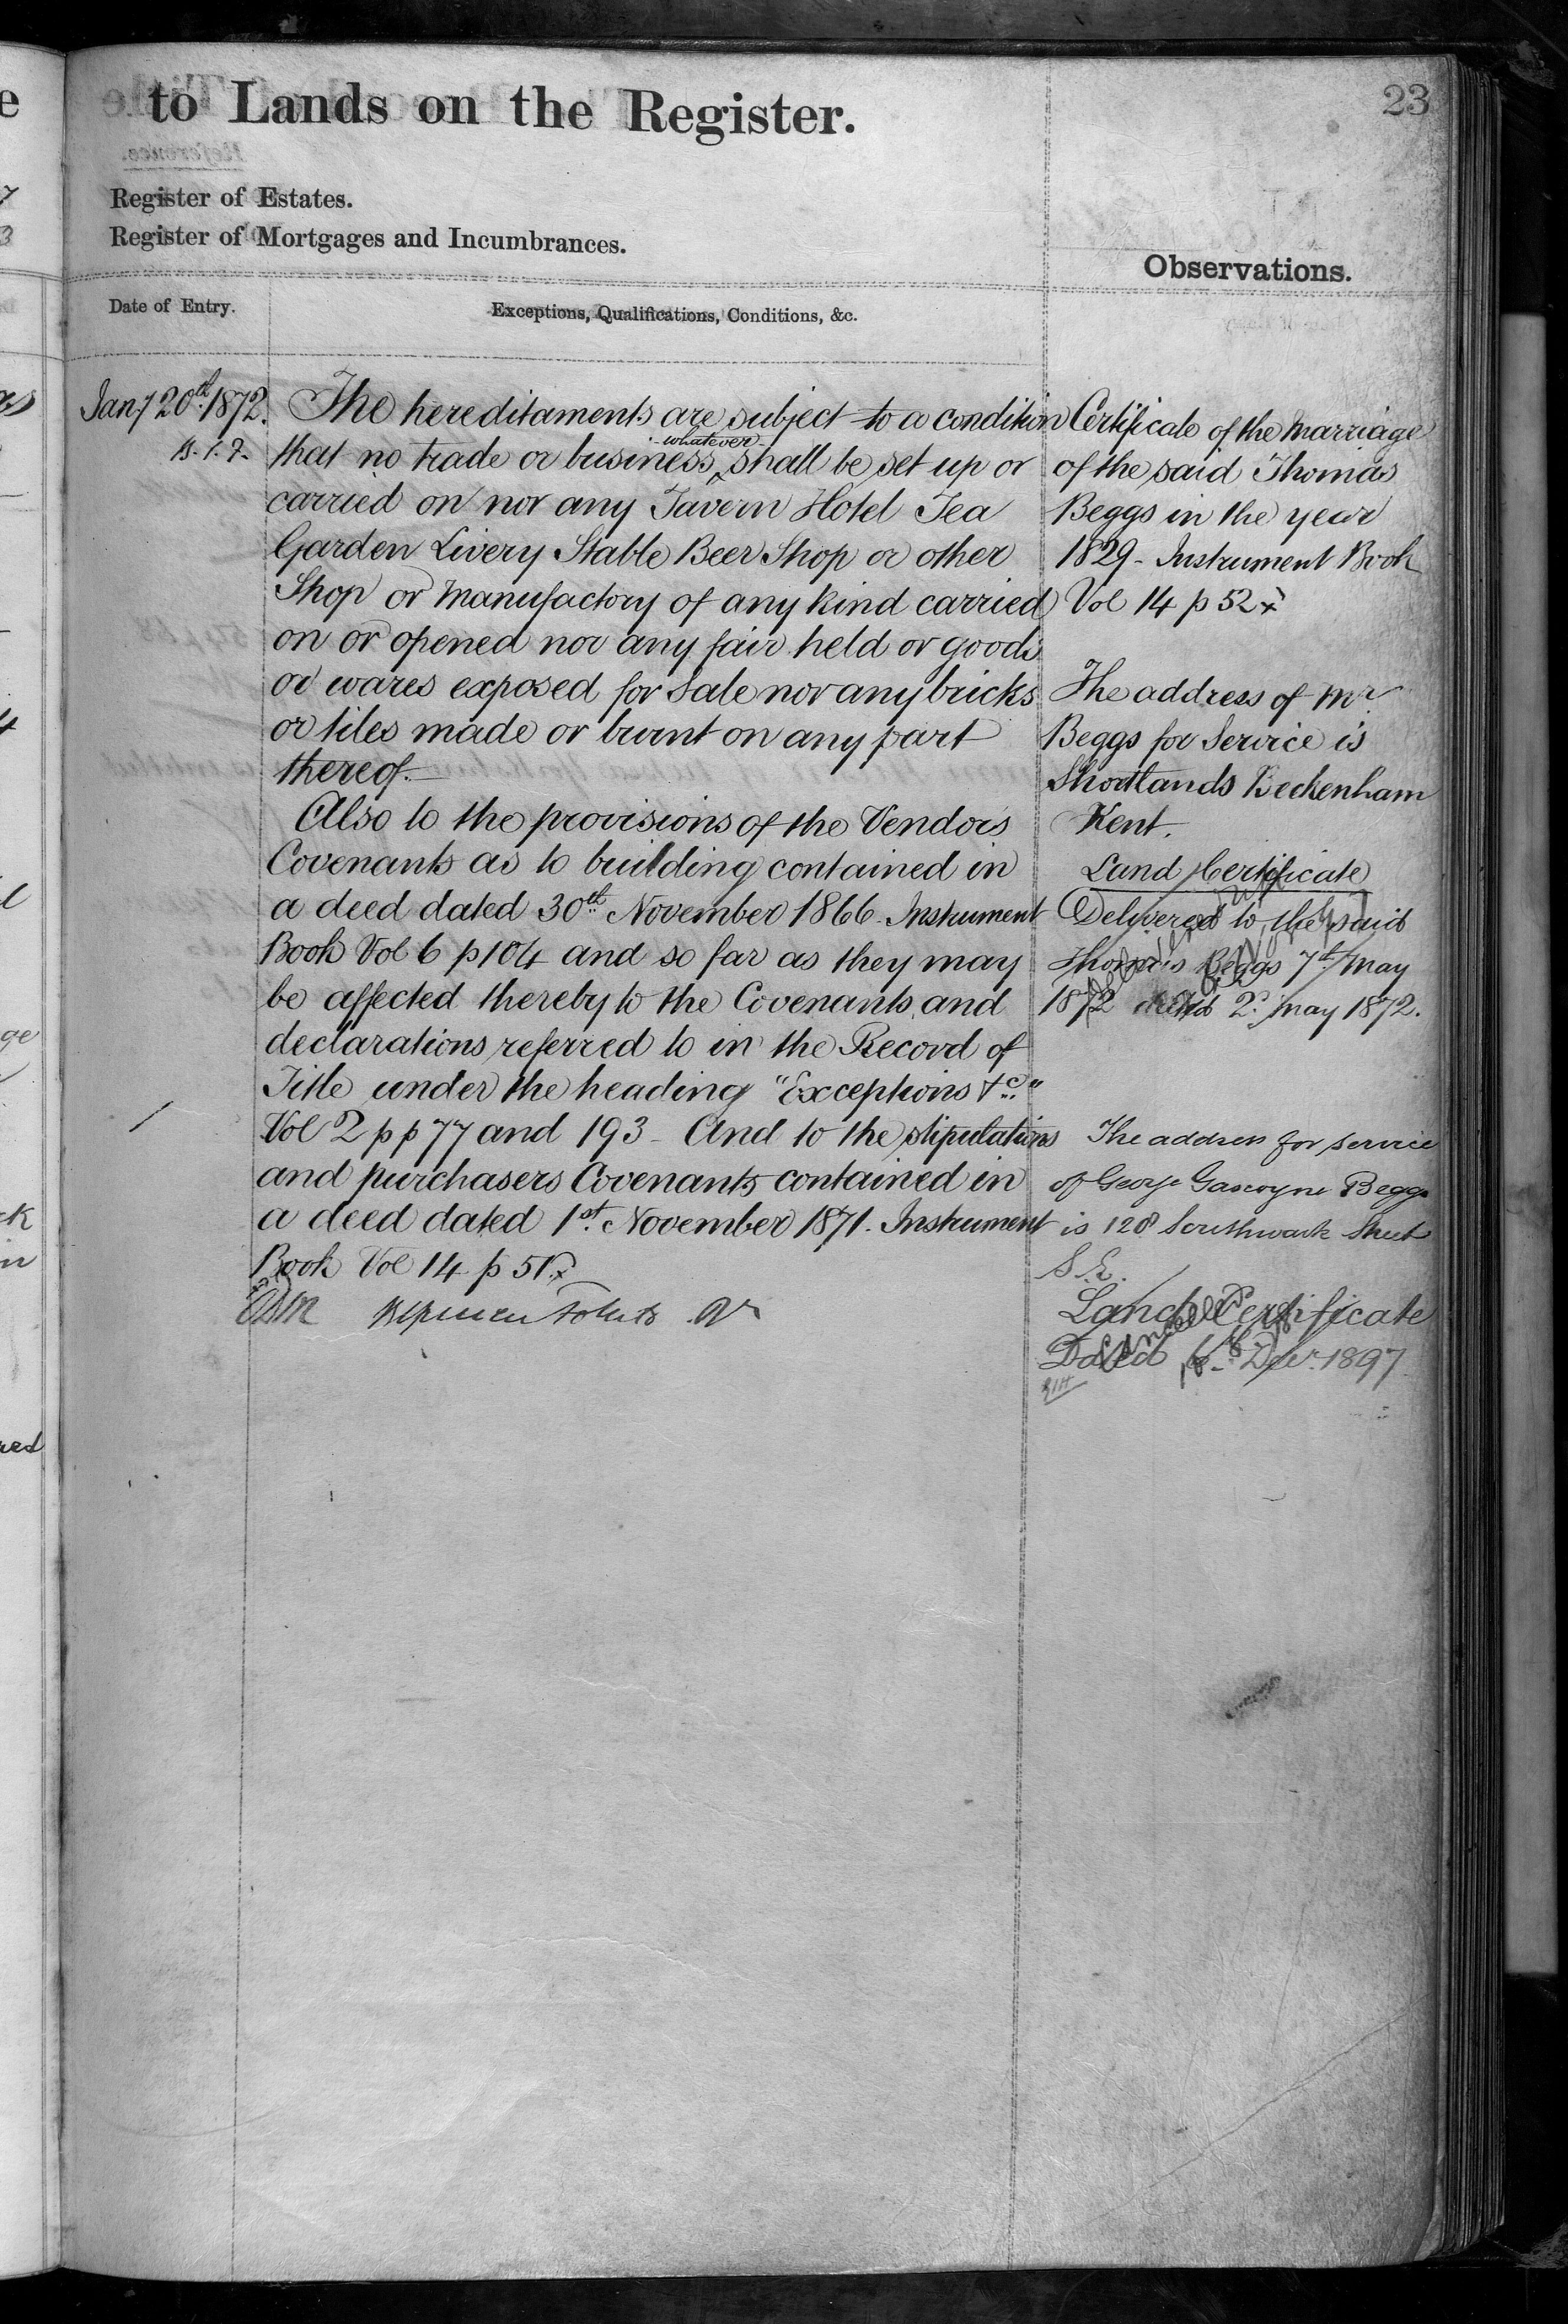 to Lands on the Register.
23
Register of Estates.
Register of Mortgages and Incumbrances.
Observations.
Date of Entry.
Exceptions, Qualifications, Conditions, &c.
Jany 20th 1872.
The hereditaments are subject to a condition
that no trade or business whatever shall be set up or
carried on nor any Tavern Hotel Tea
Garden Livery Stable Beer Shop or other
Shop or Manufactory of any kind carried
on or opened nor any fair held or goods
or wares exposed for Sale nor any bricks
or tiles made or burnt on any part
thereof.
Also to the provisions of the Vendors
Covenants as to building contained in
a deed dated 30th November 1866. Instrument
Book Vol 6 p 104 and so far as they may
be affected thereby to the Covenants and
declarations referred to in the Record of
Title under the heading "Exceptions &c."
Vol 2 pp 77 and 193 - And to the stipulations
and purchasers Covenants contained in
a deed dated 1st November 1871. Instrument
Book Vol 14 p 51
Certificate of the Marriage
of the said Thomas
Beggs in the year
1829 - Instrument Book
Vol 14 p 52
The address of Mr
Beggs for Service is
Shortlands Beckenham
Kent.
Land Certificate
Delivered to the said
Thomas Beggs 7th May
1872 dated 2d May 1872.
The address for service
of George Gascoyne Beggs
is 128 Southwark Street
S.E.
Land Certificate
Dated Decr. 1897